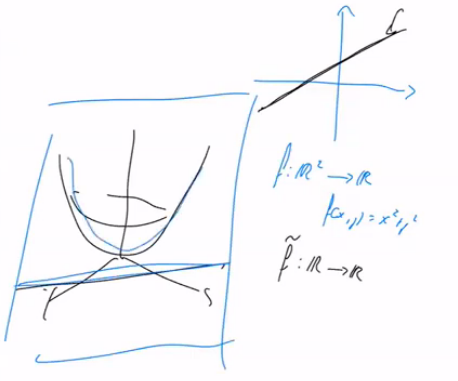 L
f : ℝ² → ℝ
f(x,y) = x²+y²
f̃ : ℝ → ℝ